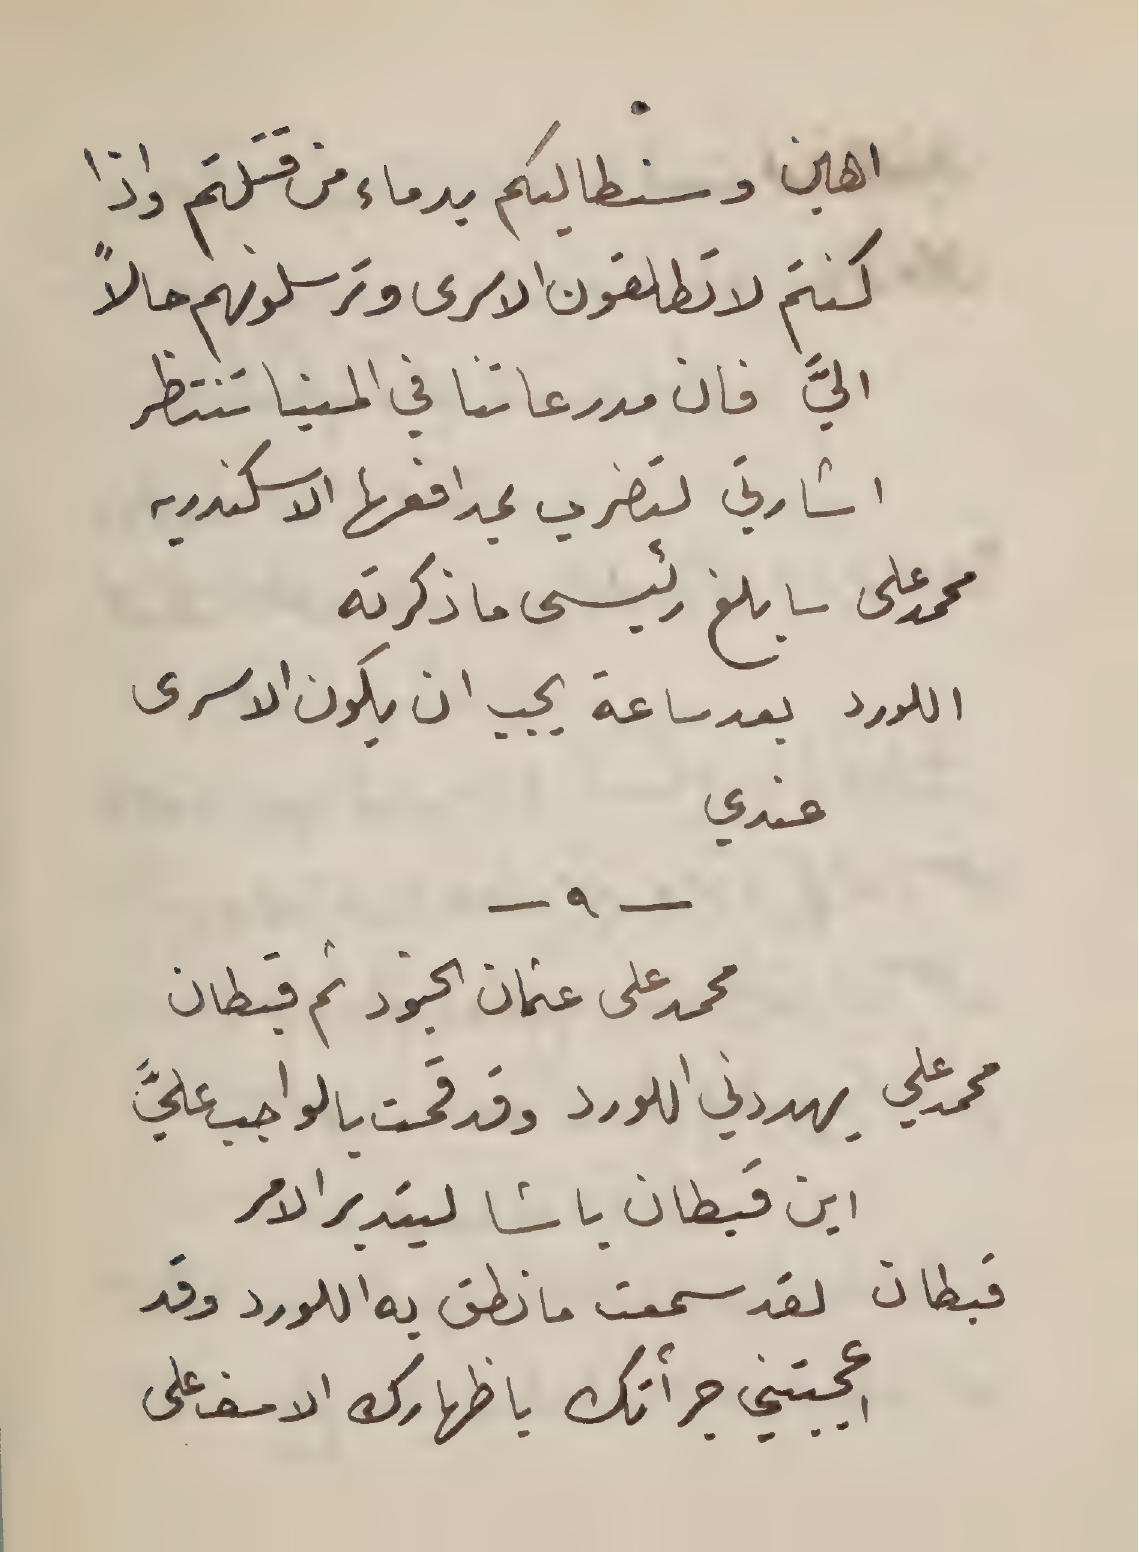 اهين وسنطالبكم بدماء من قتلتم واذا
كنتم لا تطلقون الاسرى وترسلونهم حالاً
اليَّ فان مدرعاتنا في المينا تنتظر
اشارتي لتضرب بمدافعها الاسكندريه
محمد على سابلغ رئيسى ما ذكرته
اللورد بعد ساعة يجب ان يكون الاسرى
عندي
— ٩ —
محمد على عثمان الجنود ثم قبطان
محمد علي يهددني اللورد وقد قمت بالواجب عليَّ
اين قبطان باشا ليتدبر الامر
قبطان لقد سمعت ما نطق به اللورد وقد
اعجبتني جرأتك باظهارك الاسف على